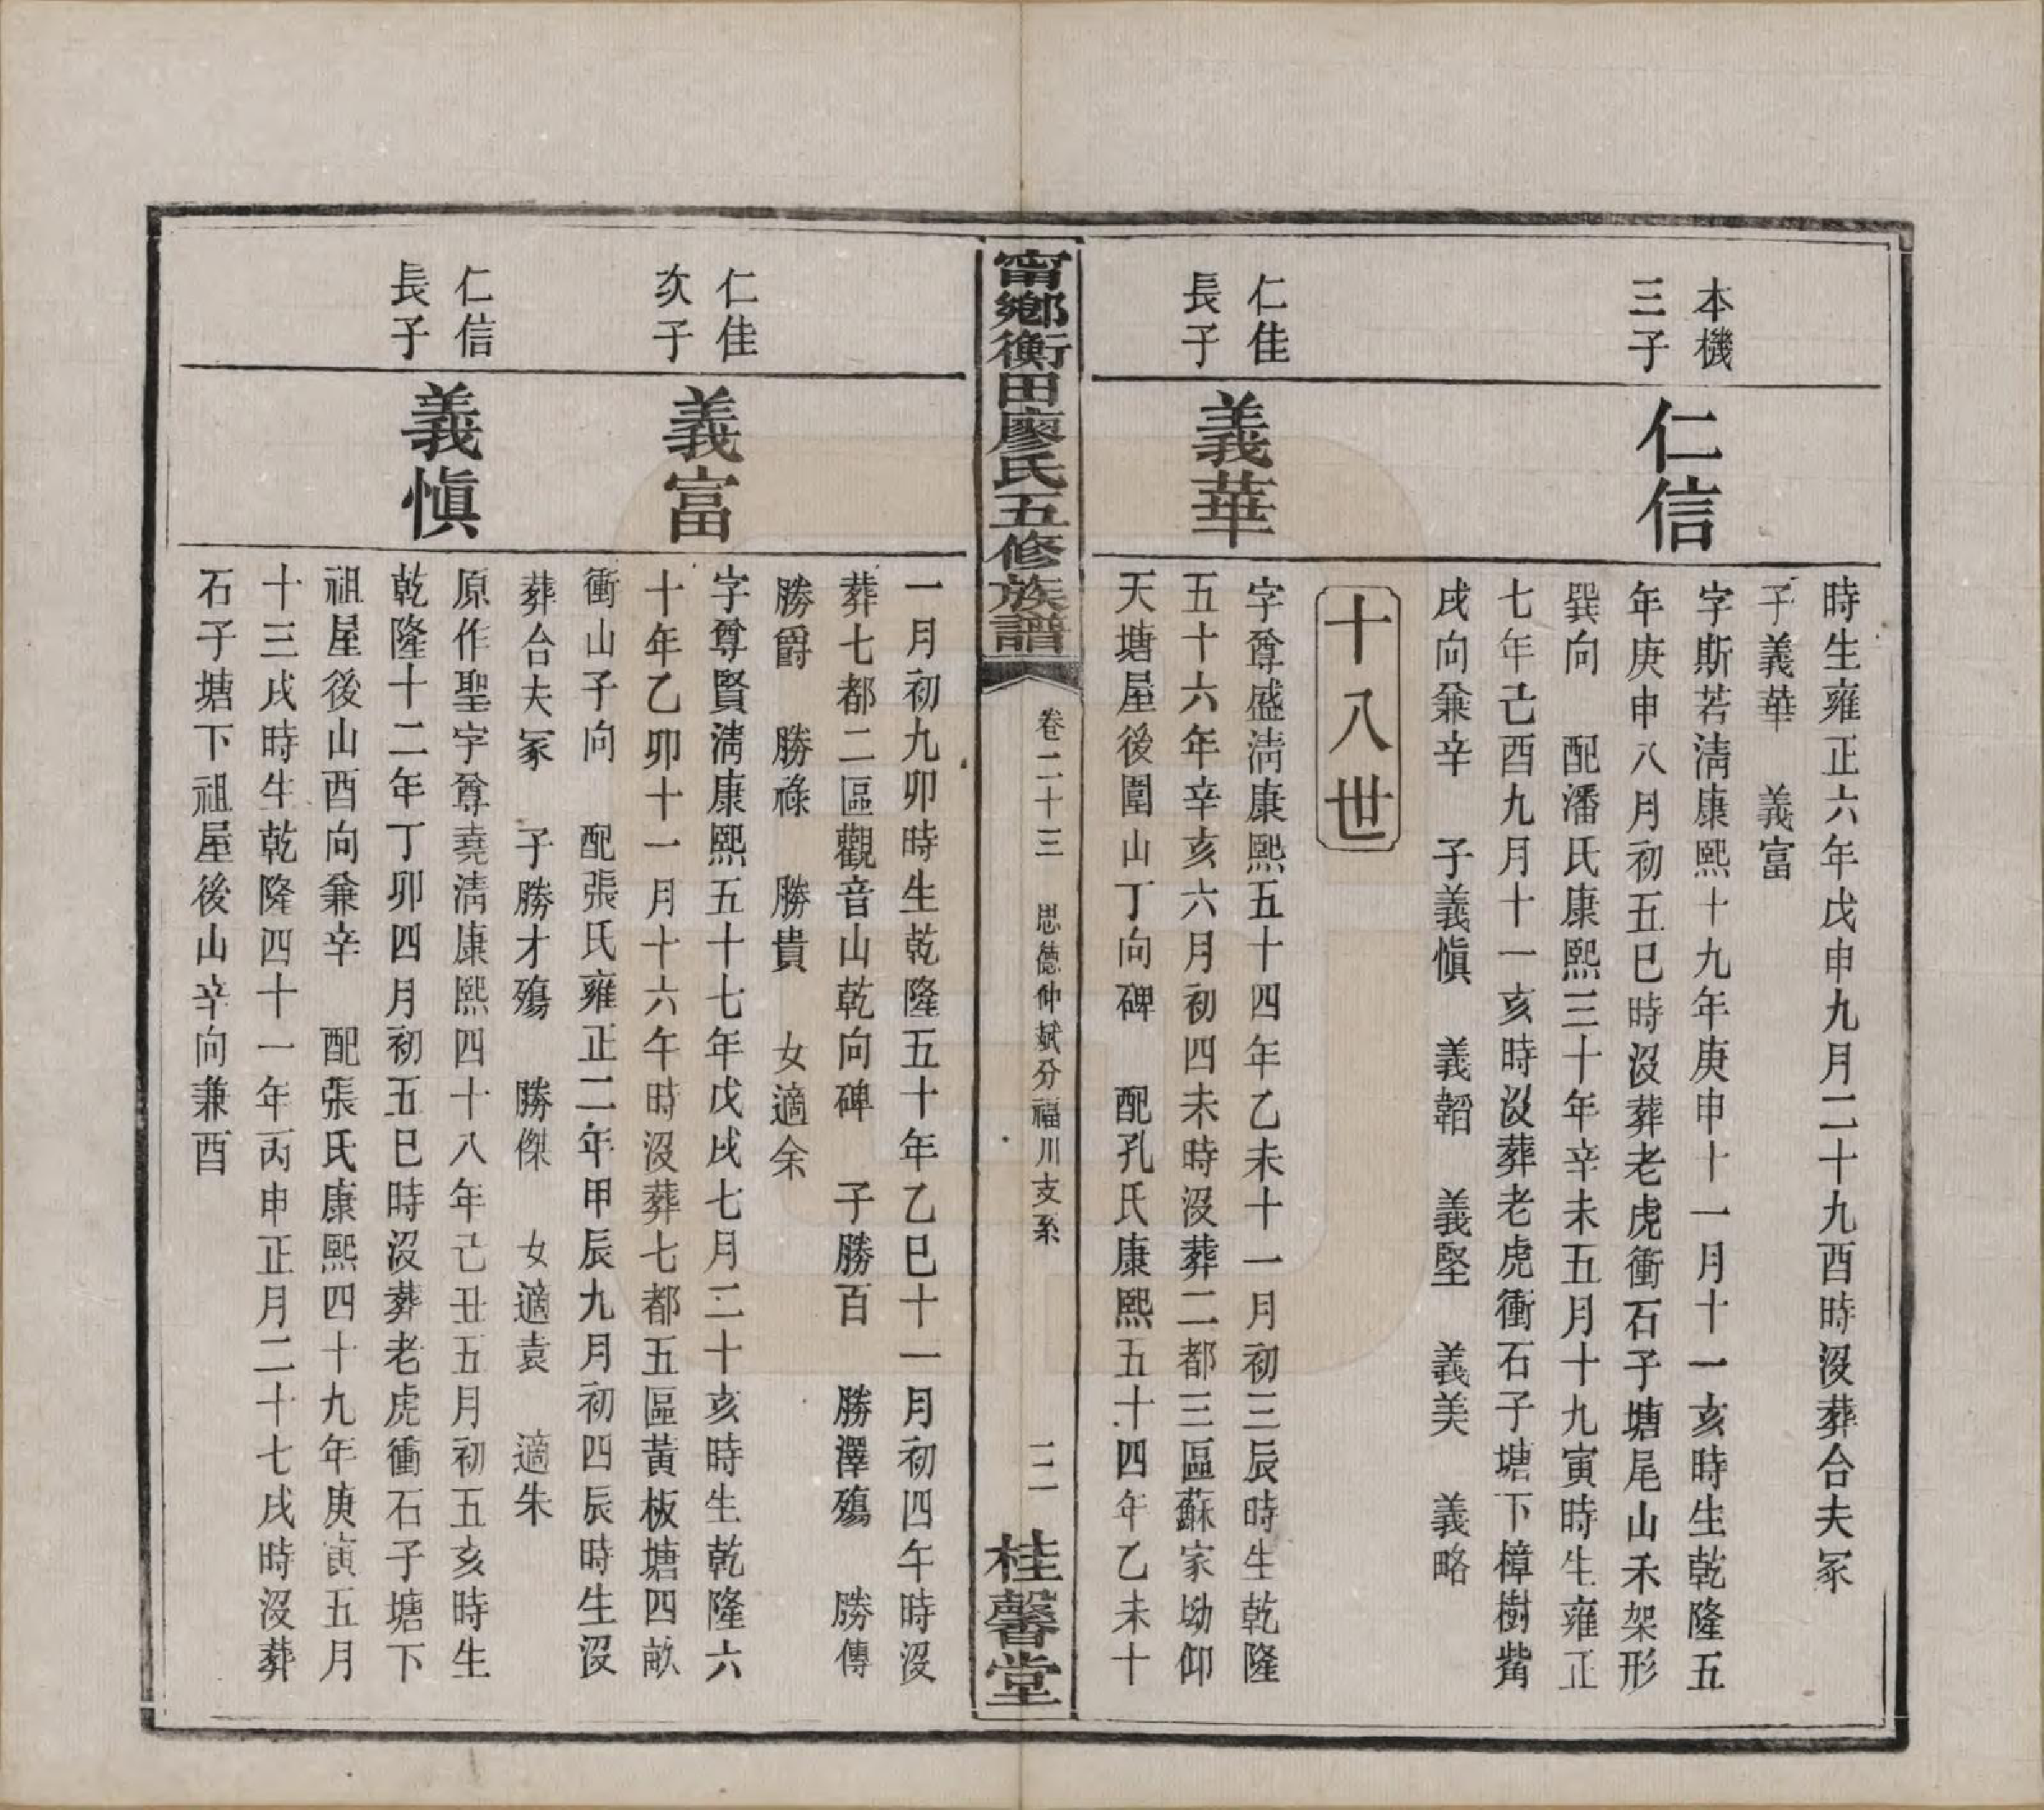 時生雍正六年戊申九月二十九酉時沒葬合夫冢
子義華　義富
本機
三子
仁信
字斯若淸康熙十九年庚申十一月十一亥時生乾隆五
年庚申八月初五巳時沒葬老虎衝石子塘尾山禾架形
巽向　配潘氏康熙三十年辛未五月十九寅時生雍正
七年己酉九月十一亥時沒葬老虎衝石子塘下樟樹觜
戌向兼辛　子義愼　義韜　義堅　義美　義略
十八世
仁佳
長子
義華
字尊盛淸康熙五十四年乙未十一月初三辰時生乾隆
五十六年辛亥六月初四未時沒葬二都三區蘇家坳仰
天塘屋後圍山丁向碑　配孔氏康熙五十四年乙未十
甯鄉衡田廖氏五修族譜
卷二十三　思德仲斌分福川支系
二二
桂馨堂
一月初九卯時生乾隆五十年乙巳十一月初四午時沒
葬七都二區觀音山乾向碑　子勝百　勝澤殤　勝傳
勝爵　勝祿　勝貴　女適余
仁佳
次子
義富
字尊賢淸康熙五十七年戊戌七月二十亥時生乾隆六
十年乙卯十一月十六午時沒葬七都五區黃板塘四畝
衝山子向　配張氏雍正二年甲辰九月初四辰時生沒
葬合夫冢　子勝才殤　勝傑　女適袁　適朱
仁信
長子
義愼
原作聖字尊堯淸康熙四十八年己丑五月初五亥時生
乾隆十二年丁卯四月初五巳時沒葬老虎衝石子塘下
祖屋後山酉向兼辛　配張氏康熙四十九年庚寅五月
十三戌時生乾隆四十一年丙申正月二十七戌時沒葬
石子塘下祖屋後山辛向兼酉